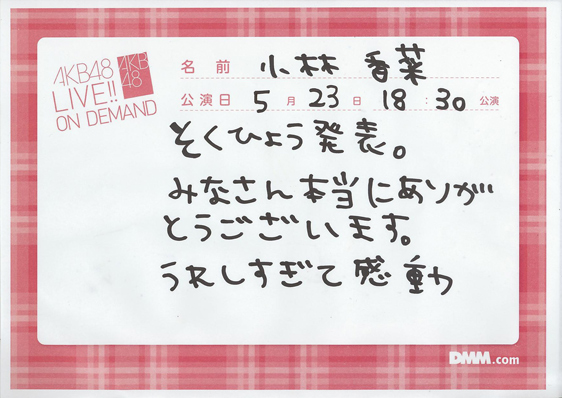 AKB48
LIVE!!
ON DEMAND
AKB
48
名前 小林 香菜
公演日 5月23日 18:30公演
そくひょう発表。
みなさん本当にありが
とうございます。
うれしすぎて感動
DMM.com